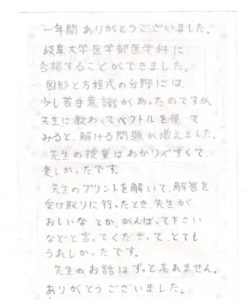 一年間ありがとうございました。
岐阜大学医学部医学科に
合格することができました。
図形と方程式の分野には
少し苦手意識があったのですが、
先生に教わってベクトルを使って
みると、解ける問題が増えました。
先生の授業はわかりやすくて、
楽しかったです。
先生のプリントを解いて、解答を
受け取りに行ったとき、先生が
おしいな とか、がんばって下さい
などと言ってくださって、とても
うれしかったです。
先生のお話はずっと忘れません。
ありがとうございました。